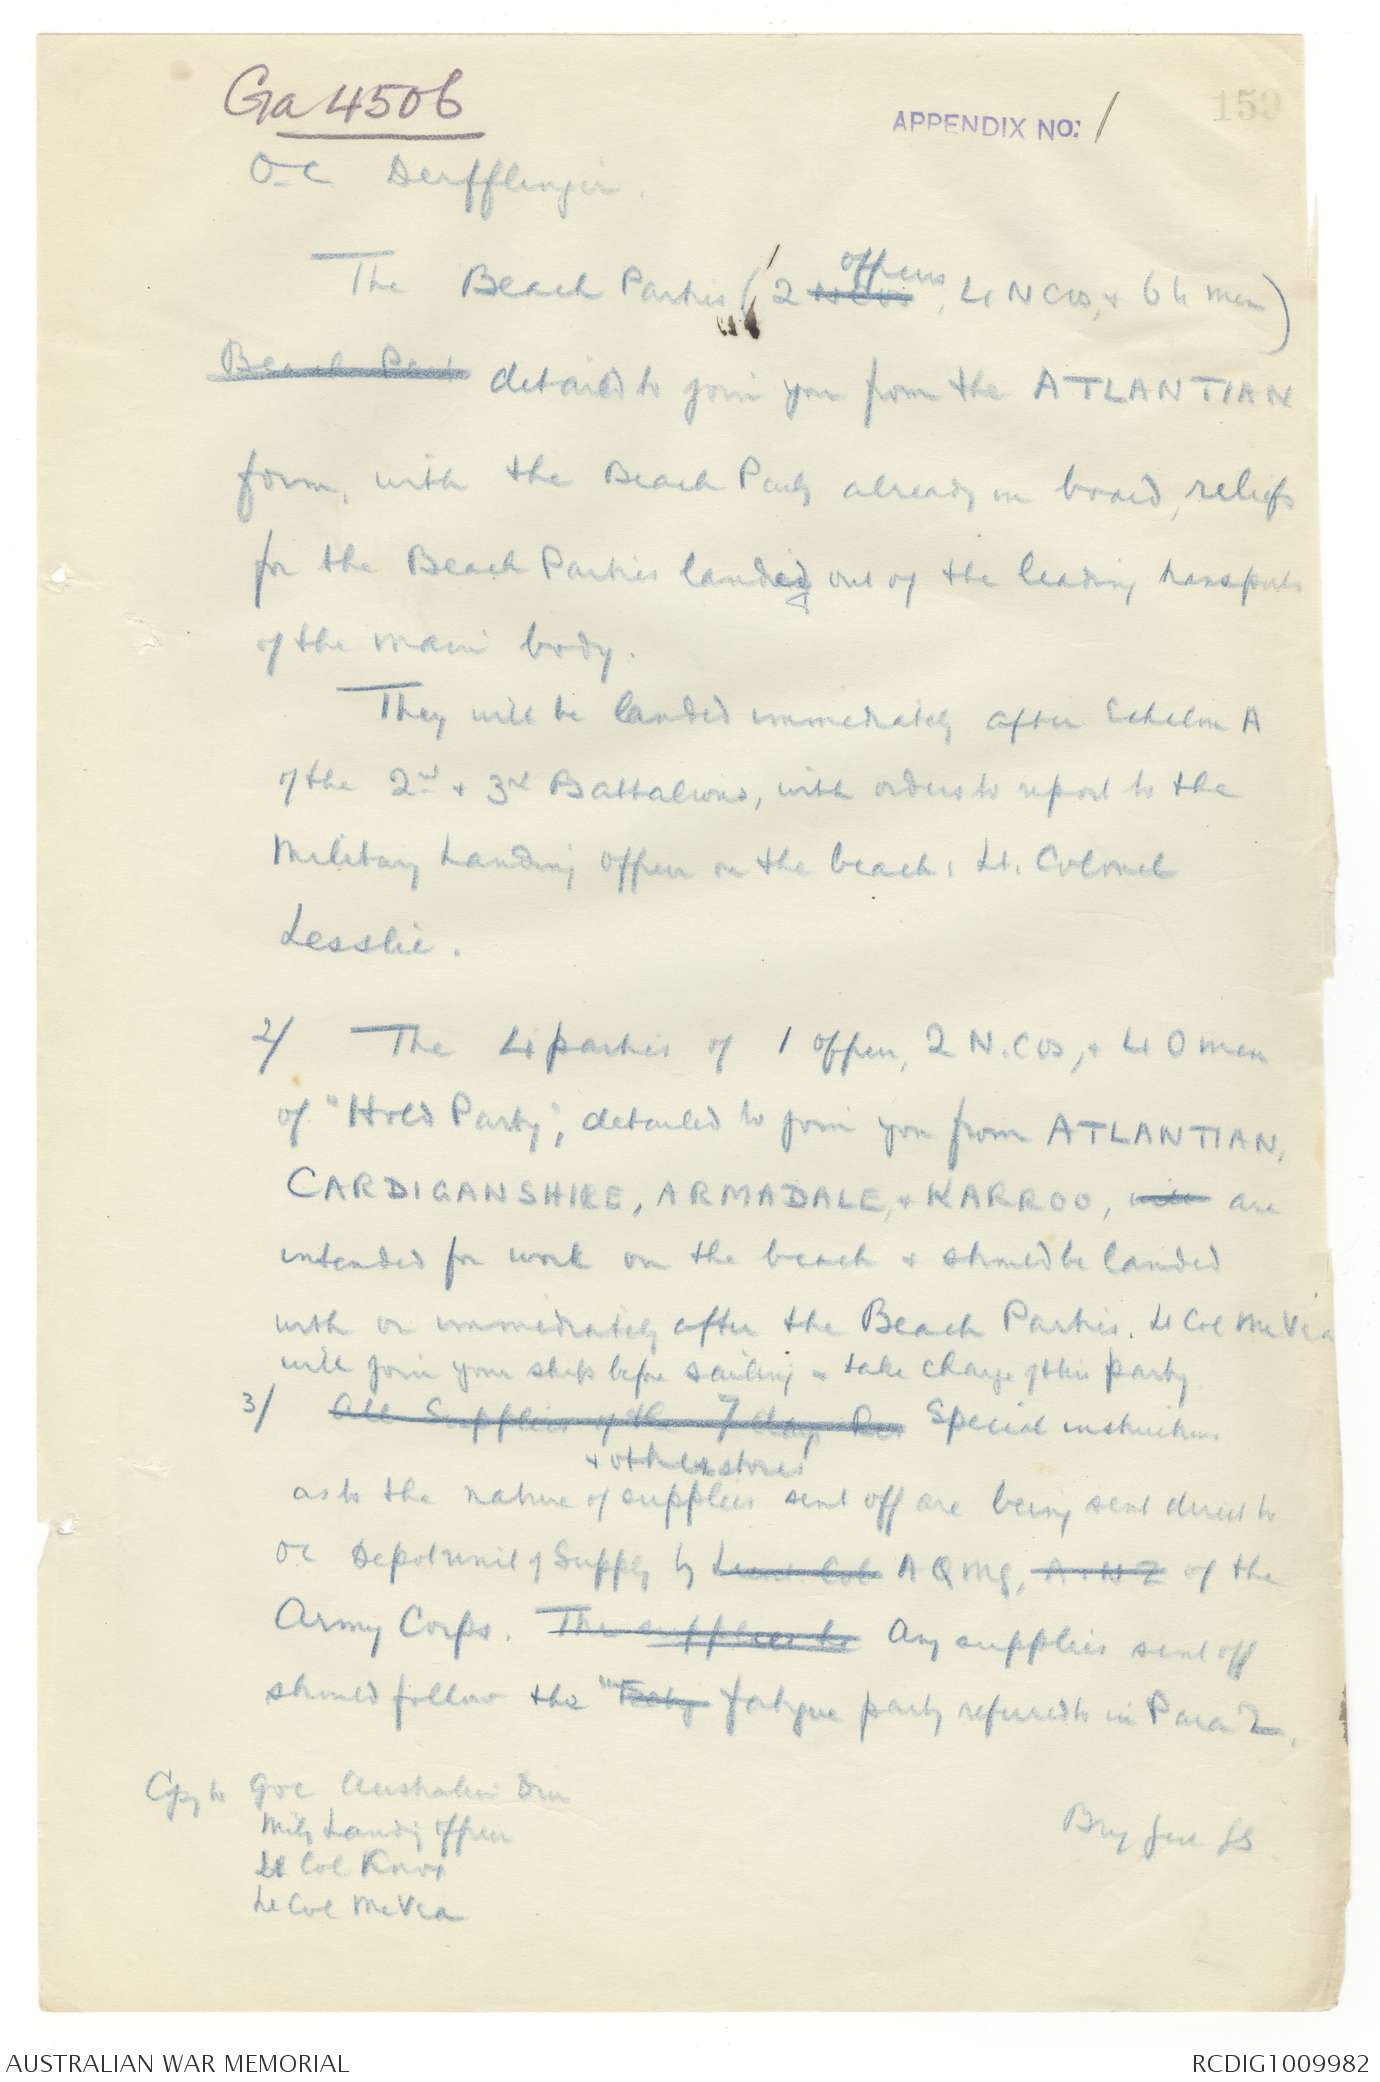 Ga 4506
APPENDIX NO: 1
159
O.C Derfflinger.
The Beach Parties (2 NCOs officers, 4 NCOs, + 64 men)
Beach Part detailed to join you from the ATLANTIAN
form, with the Beach Party already on board, reliefs
for the Beach Parties landing out of the leading transports
of the main body.
They will be landed immediately after Echelon A
of the 2nd + 3rd Battalions, with orders to report to the
Military Landing Officer on the beach, Lt. Colonel
Lesslie.
2/ The 4 parties of 1 officer, 2 N.COs, + 40 men
of "Hold Party", detailed to join you from ATLANTIAN,
CARDIGANSHIRE, ARMADALE, + KARROO, will are
intended for work on the beach + should be landed
with or immediately after the Beach Parties. Lt Col McVea
will join your ship before sailing & take charge of this party
3/ All Supplies of the 7 day Res Special instructions
+ other stores
as to the nature of supplies sent off are being sent direct to
OC Depot Unit of Supply by Lieut. Col AQMG, A+NZ of the
Army Corps. The supplies to Any supplies sent off
should follow the "Fatig fatigue party referred to in Para 2.
Copy to GOC Australian Div
Mily Landg Officer
Lt Col Knox
Lt Col McVea
Brig Gen GS
AUSTRALIAN WAR MEMORIAL
RCDIG1009982